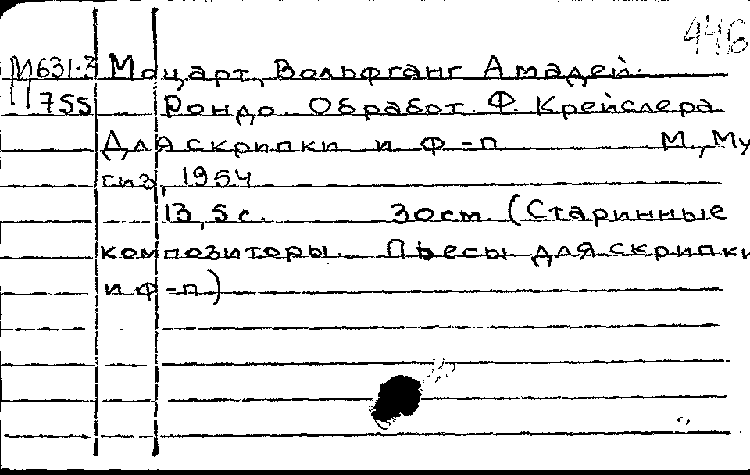 446
М631.3 Моцарт, Вольфганг Амадей.
755 Рондо. Обработ. Ф. Крейслера
Для скрипки и ф-п М., Му
сиз, 1954
13,5 с. 30 см. (Старинные
композиторы. Пьесы для скрипки
и ф-п)